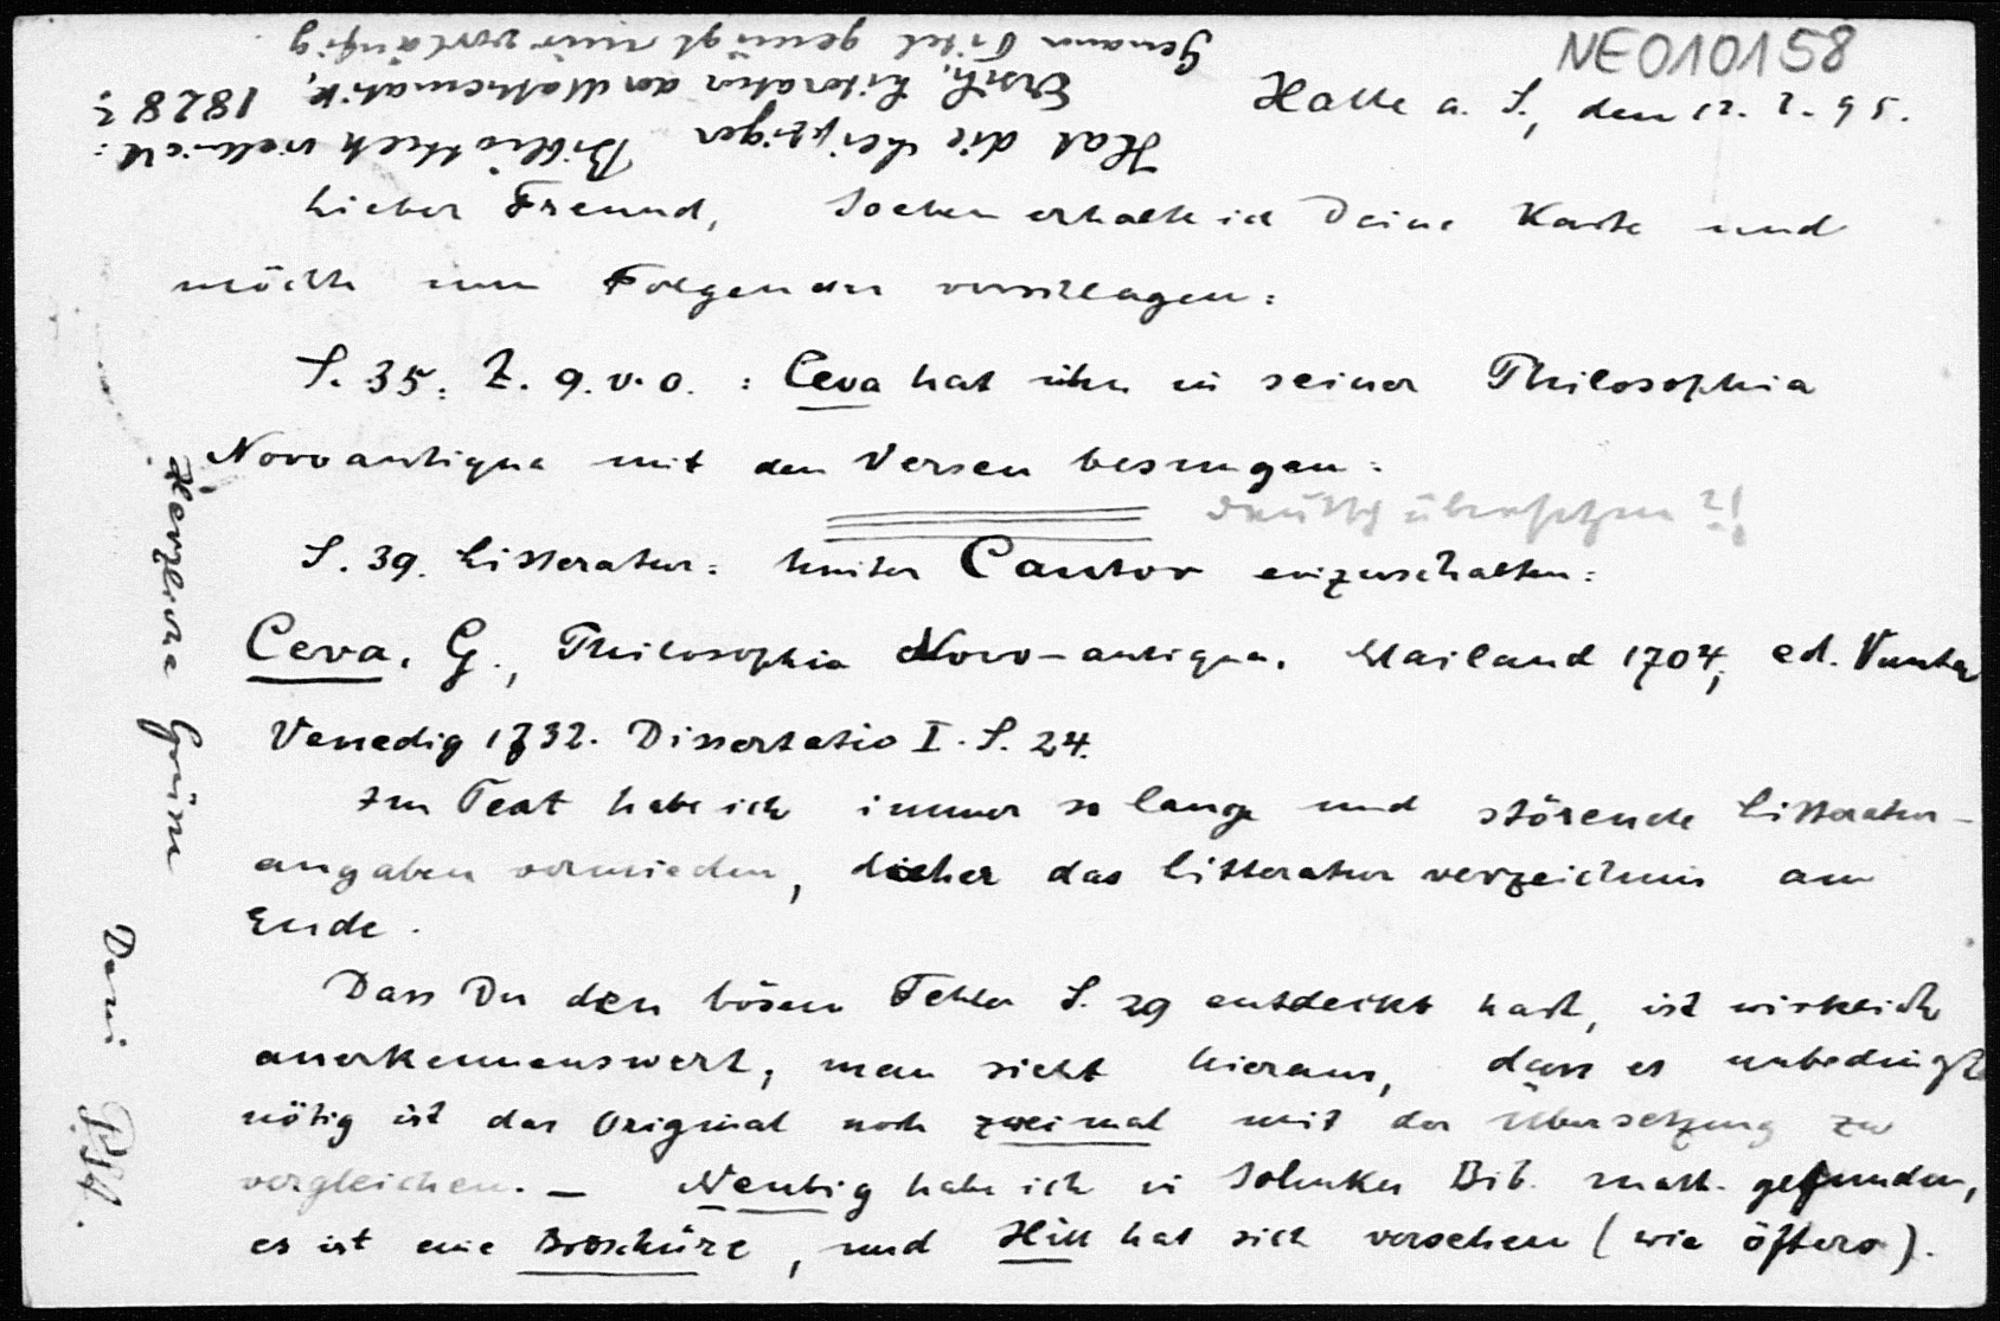 NE010158
Halle a. S., den 12. 2. 95.
Lieber Freund, Soeben erhalte ich Deine Karte und
möchte nun Folgendes vorschlagen:
S. 35. Z. 9. v. o. : Ceva hat ihn in seiner Philosophia
Novoantiqua mit den Versen besungen:
Deutsch übersetzen?!
S. 39. Litteratur: hinter Cantor einzuschalten:
Ceva, G., Philosophia Novo-antiqua. Mailand 1704; ed.
Venedig 1732. Dissertatio I. S. 24.
Im Text habe ich immer so lange und störende Litteratur-
angaben vermieden, daher das Litteraturverzeichnis am
Ende.
Dass Du den bösen Fehler S. 29 entdeckt hast, ist wirklich
anerkennenswert, man sieht hieraus, dass es unbedingt
nötig ist das Original noch zweimal mit der Übersetzung zu
vergleichen. – Neubig habe ich in Sohnkes Bib. math. gefunden,
es ist eine Broschüre, und Hill hat sich versehen (wie öfters).
Herzliche Grüsse
Dein PSt.
Hat die Leipziger Bibliothek vielleicht:
Ersch, Literatur der Mathematik, 1828?
Genauer Titel genügt mir vorläufig.